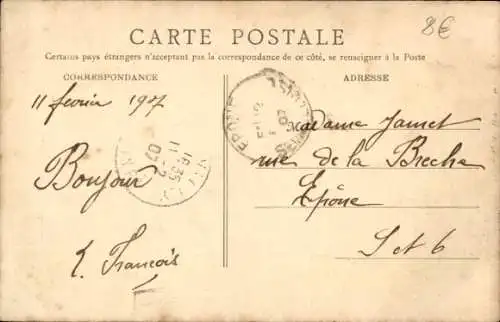 8€
CARTE POSTALE
Certains pays étrangers n'acceptant pas la correspondance de ce côté, se renseigner à la Poste
CORRESPONDANCE
ADRESSE
11 fevrier 1907
Bonjour
E. François
Madame Jamet
rue de la Breche
Epône
S et O
EPONE
16 35
11 - 2
07